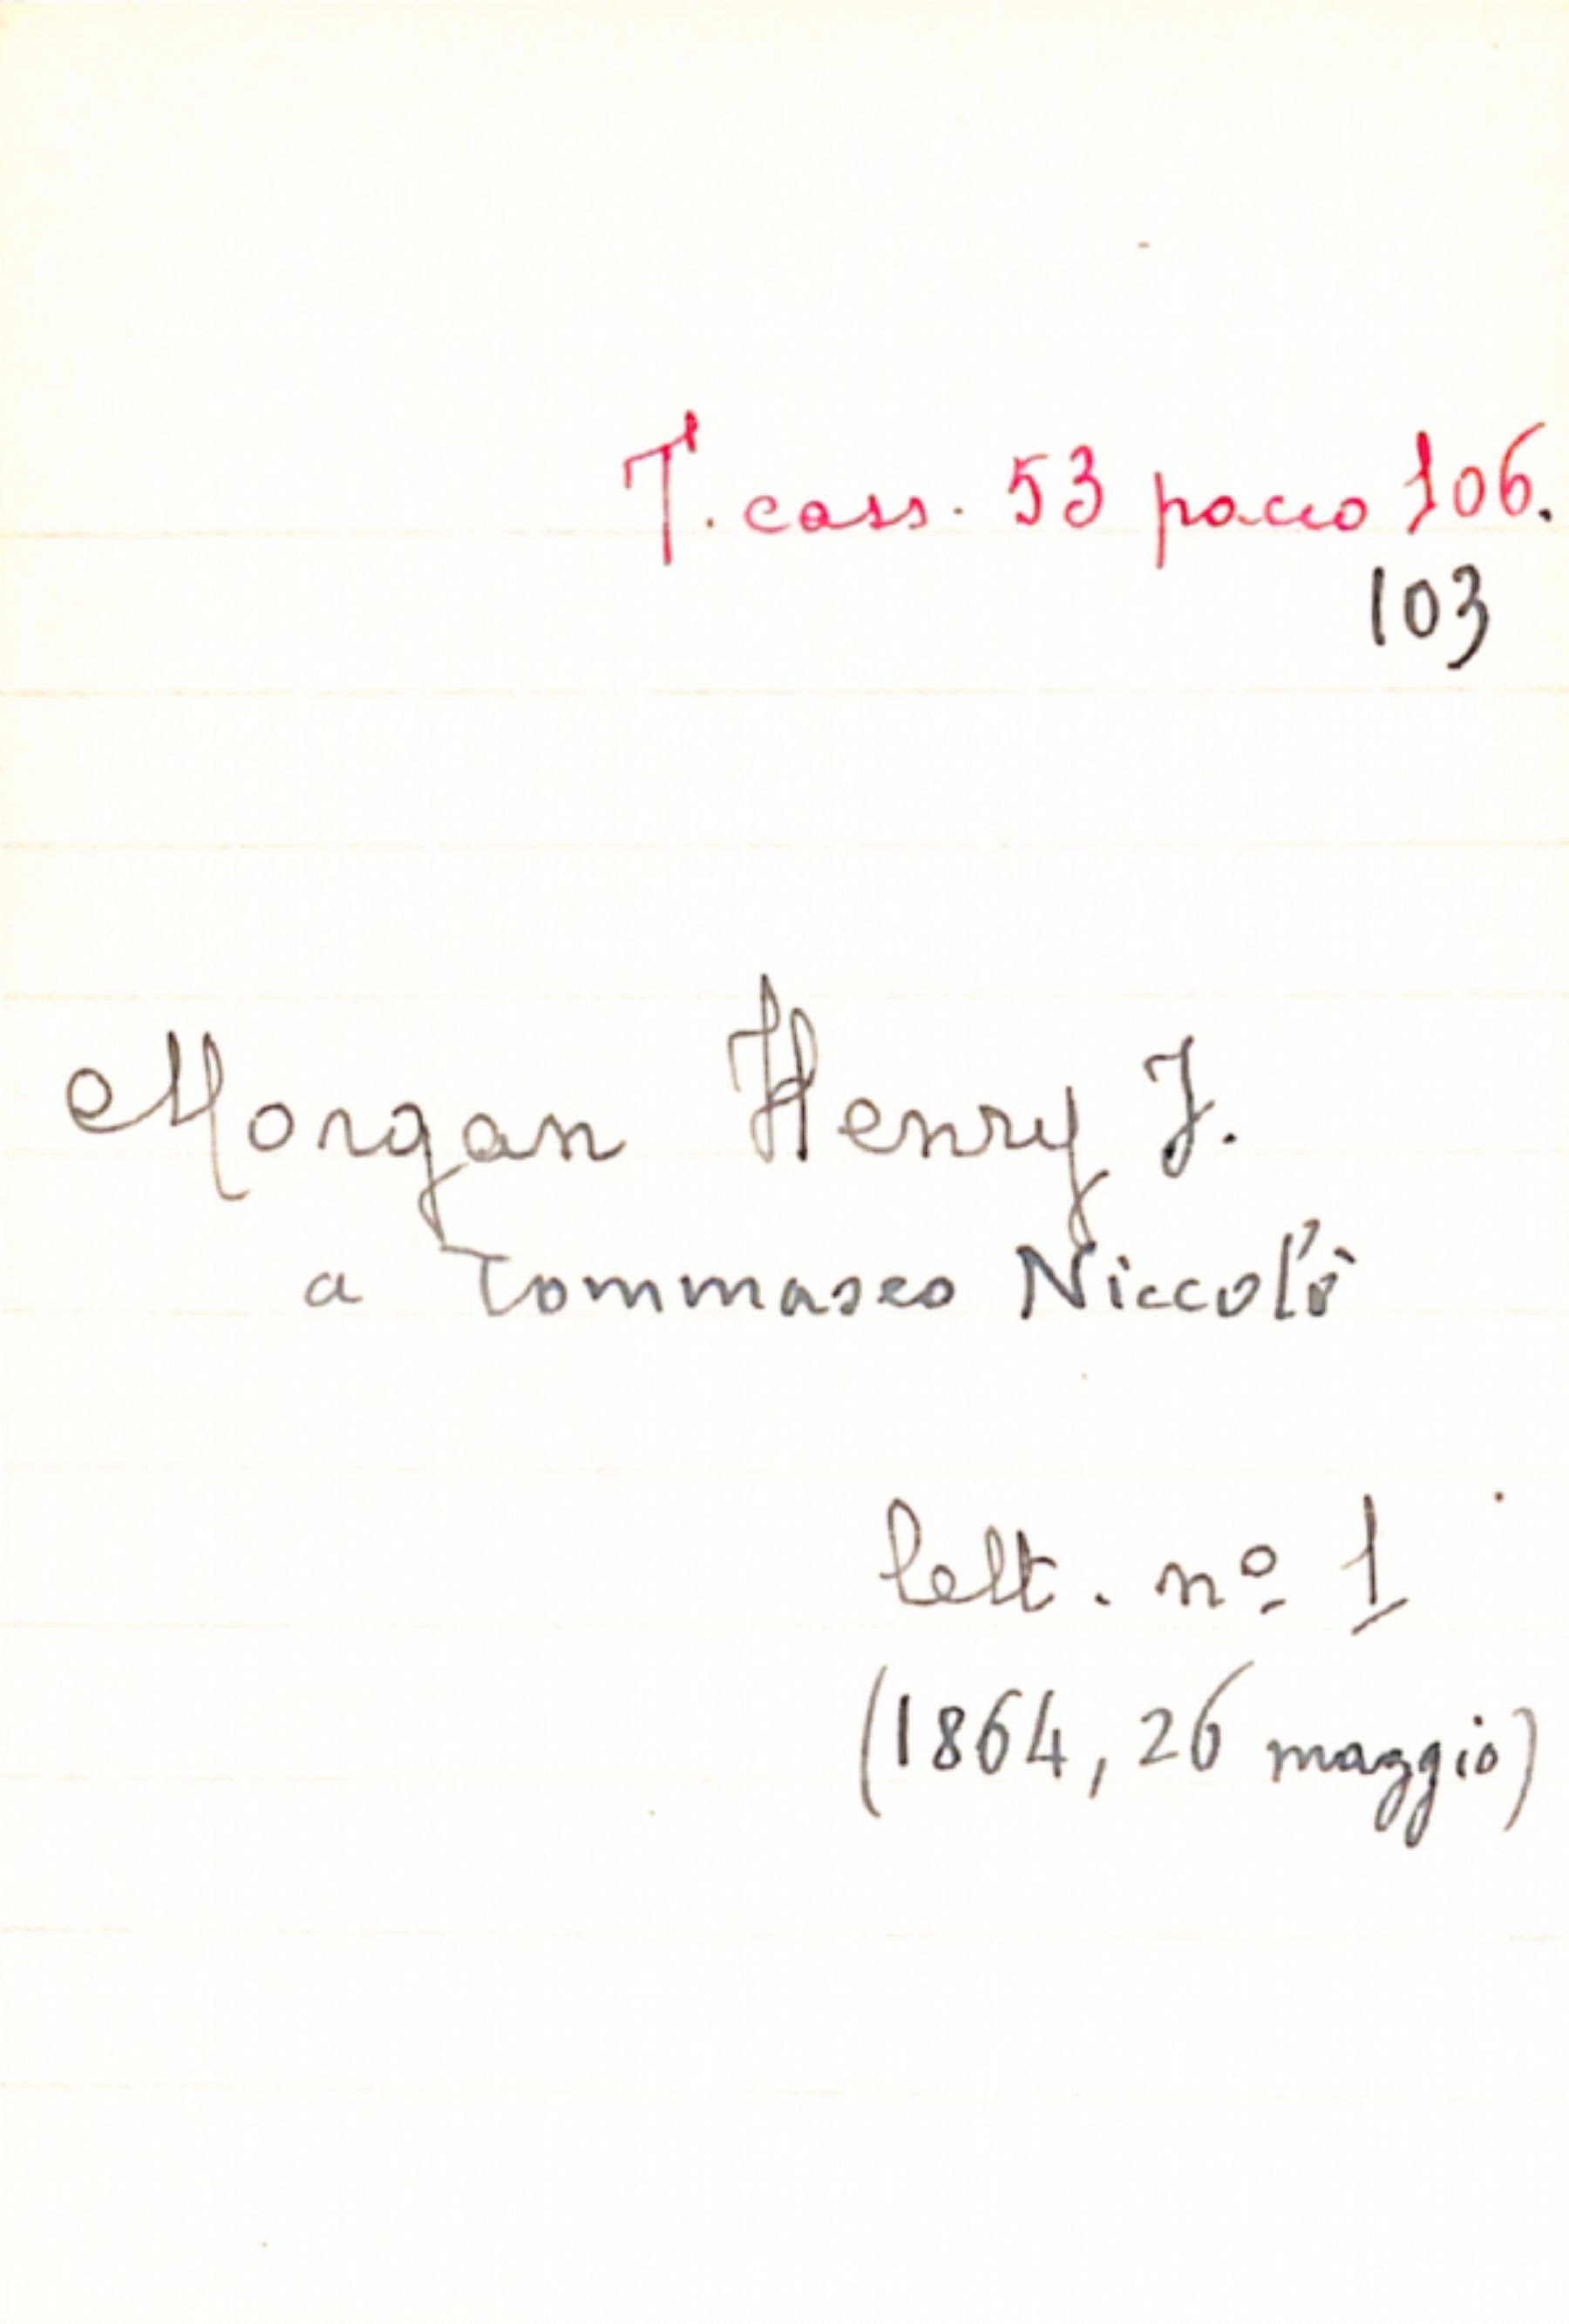 T. cass. 53 pacco 106.
103
Morgan Henry J.
a Tommaseo Niccolò
lett. nº 1
(1864, 26 maggio)